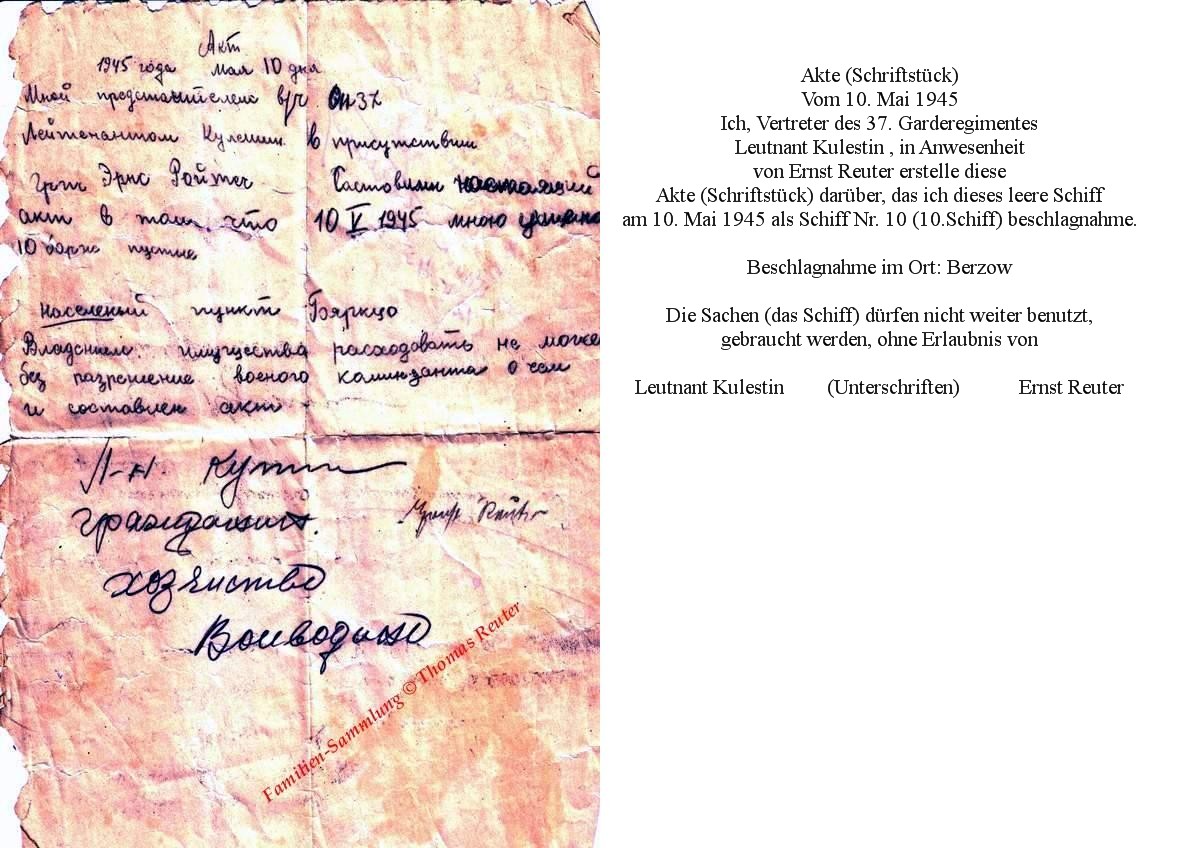 Акт
1945 года мая 10 дня
Мной представителем в/ч
Лейтенантом Кулешин в присутствии
Эрнс Ройтер Составили настоящий
акт в том, что 10 V 1945 мною
10 барж пустые
населеный пункт
имущества расходовать не може
без разрешение военого о чем
и составлен акт
Л-н.
гражданин.
хозяйство
Familien-Sammlung © Thomas Reuter
Akte (Schriftstück)
Vom 10. Mai 1945
Ich, Vertreter des 37. Garderegimentes
Leutnant Kulestin , in Anwesenheit
von Ernst Reuter erstelle diese
Akte (Schriftstück) darüber, das ich dieses leere Schiff
am 10. Mai 1945 als Schiff Nr. 10 (10.Schiff) beschlagnahme.
Beschlagnahme im Ort: Berzow
Die Sachen (das Schiff) dürfen nicht weiter benutzt,
gebraucht werden, ohne Erlaubnis von
Leutnant Kulestin (Unterschriften) Ernst Reuter